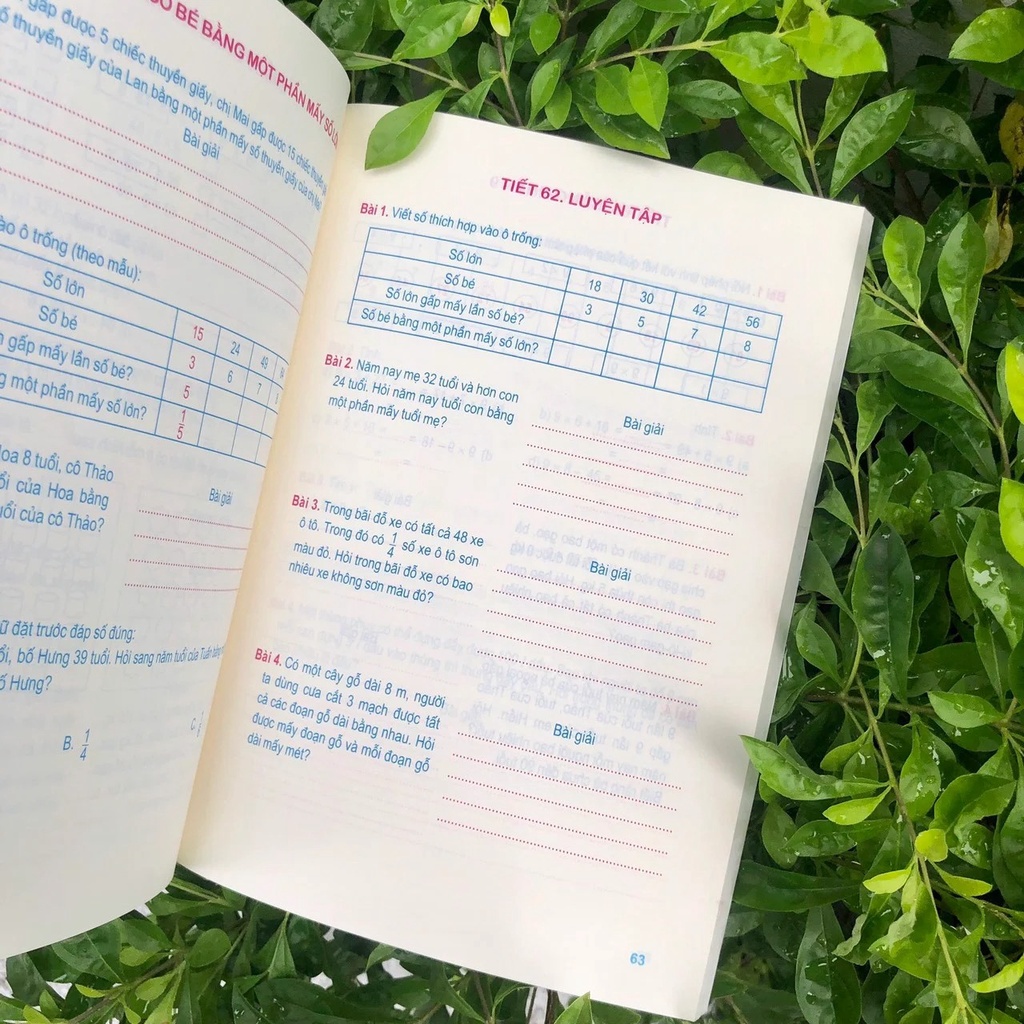 BÉ BẰNG MỘT PHẦN MẤY SỐ
gấp được 5 chiếc thuyền giấy, chị Mai gấp được 15 chiếc thuyền
thuyền giấy của Lan bằng một phần mấy số thuyền giấy của chị Mai?
Bài giải
ô trống (theo mẫu):
Số lớn 15 24 49
Số bé 3 6 7
gấp mấy lần số bé? 5
một phần mấy số lớn? 1/5
Hoa 8 tuổi, cô Thảo
của Hoa bằng
của cô Thảo?
Bài giải
đặt trước đáp số đúng:
bố Hưng 39 tuổi. Hỏi sang năm tuổi của Tuấn
Hưng?
B. 1/4
C.
TIẾT 62. LUYỆN TẬP
Bài 1. Viết số thích hợp vào ô trống:
Số lớn 18 30 42 56
Số bé 3 5 7 8
Số lớn gấp mấy lần số bé?
Số bé bằng một phần mấy số lớn?
Bài 2. Năm nay mẹ 32 tuổi và hơn con
24 tuổi. Hỏi năm nay tuổi con bằng
một phần mấy tuổi mẹ?
Bài giải
Bài 3. Trong bãi đỗ xe có tất cả 48 xe
ô tô. Trong đó có 1/4 số xe ô tô sơn
màu đỏ. Hỏi trong bãi đỗ xe có bao
nhiêu xe không sơn màu đỏ?
Bài giải
Bài 4. Có một cây gỗ dài 8 m, người
ta dùng cưa cắt 3 mạch được tất
cả các đoạn gỗ dài bằng nhau. Hỏi
được mấy đoạn gỗ và mỗi đoạn gỗ
dài mấy mét?
Bài giải
63